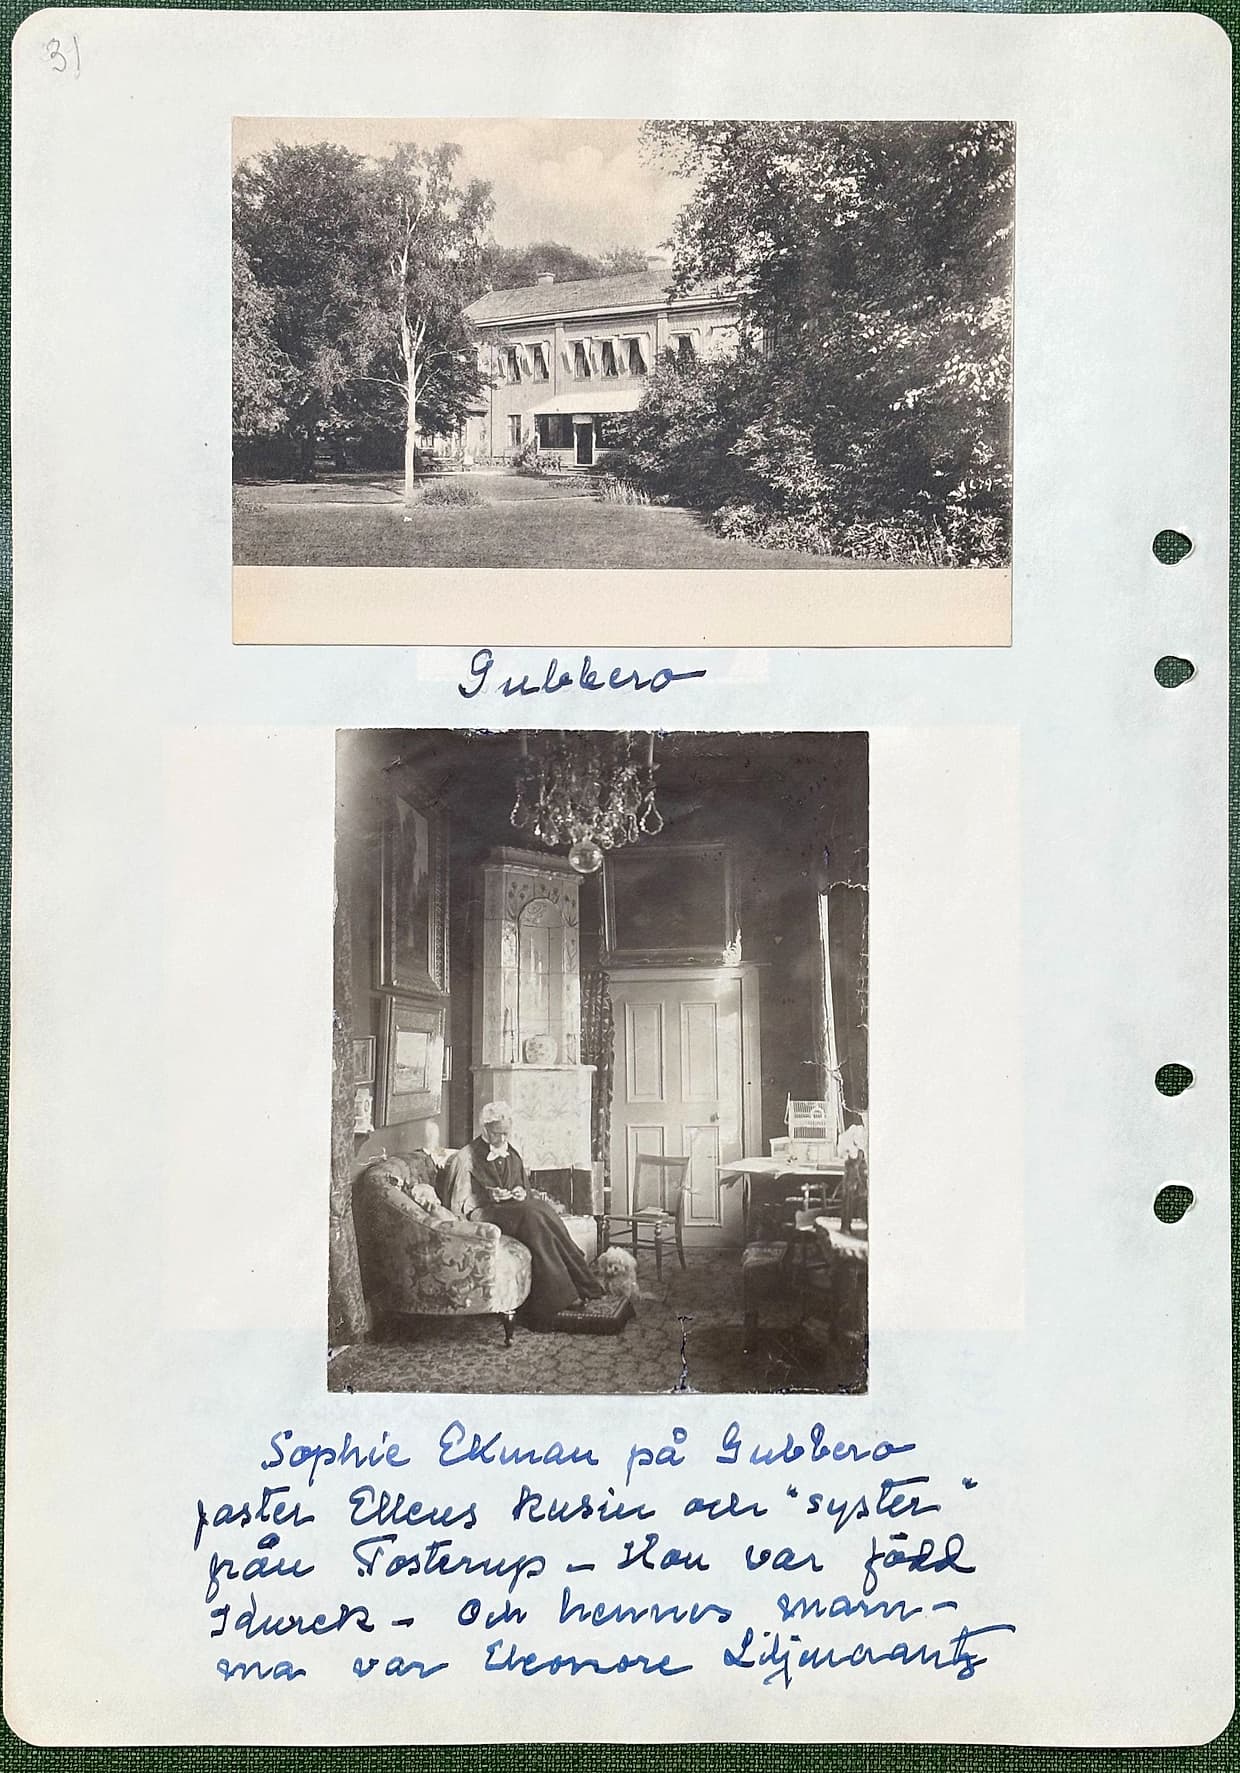 31
Gubbero
Sophie Ekman på Gubbero
faster Ellens kusin och "syster"
från Tosterup – Hon var född
Idurck – Och hennes mam-
ma var Eleonore Liljencrantz